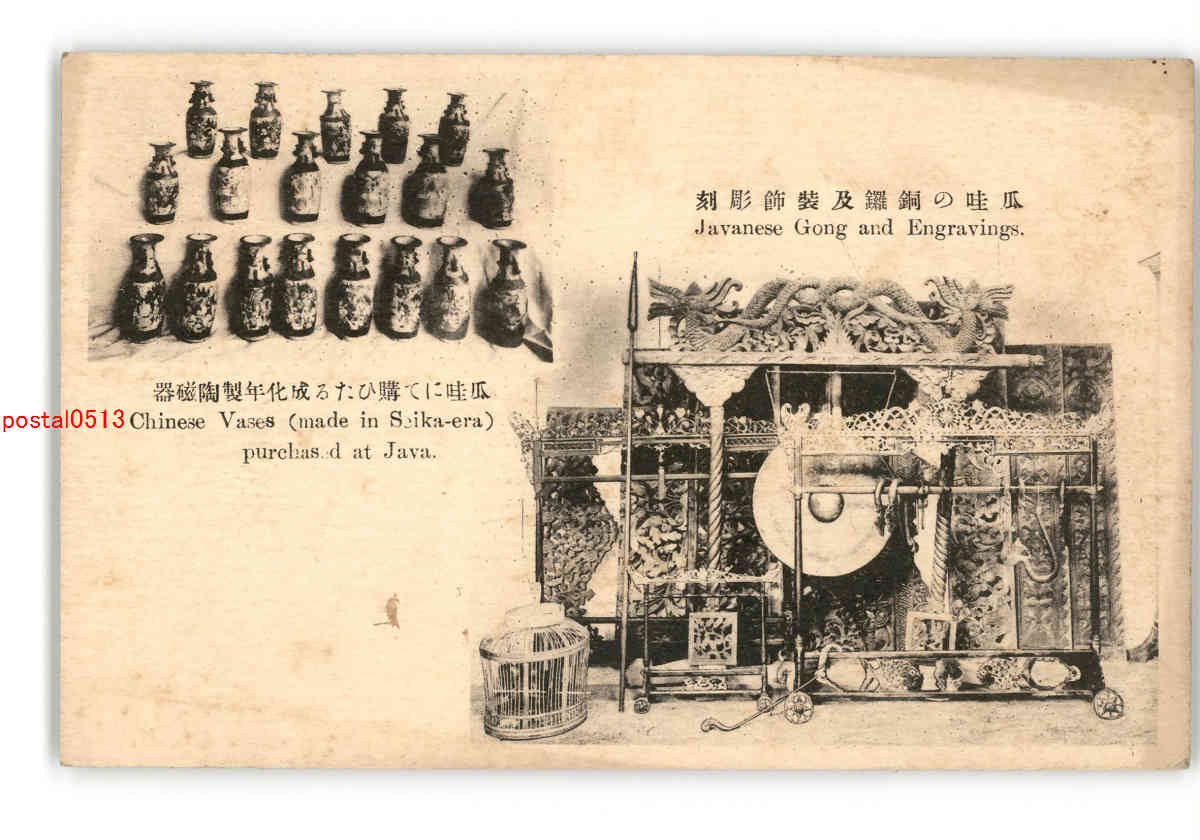 瓜哇の銅鑼及裝飾彫刻
Javanese Gong and Engravings.
瓜哇にて購ひたる成化年製陶磁器
Chinese Vases (made in Seika-era)
purchased at Java.
postal0513